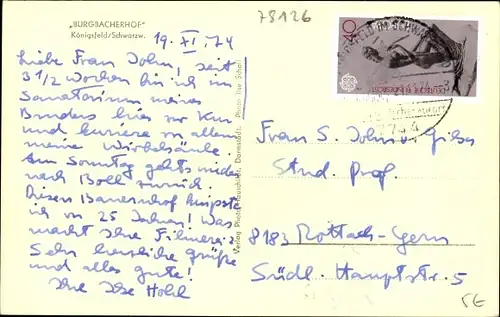 "BURGBACHERHOF"
Königsfeld/Schwarzw.
78126
19. XI. 74
Liebe Frau John, seit
3 1/2 Wochen bin ich im
Sanatorium meines
Bruders hier zur Kur
und kuriere vor allem
meine Wirbelsäule.
Am Sonntag gehts wieder
nach Boll zurück.
Diesen Bauernhof knipste
ich vor 25 Jahren! Was
macht Ihre Filmerei?
Sehr herzliche Grüße
und alles gute!
Ihre Ilse
Verlag Photo Darmstadt. Photo Ilse
DEUTSCHE BUNDESPOST
KÖNIGSFELD IM SCHWARZW
7744
Frau S. John
Stud. Prof.
8183 Rottach-Egern
Südl. Hauptstr. 5